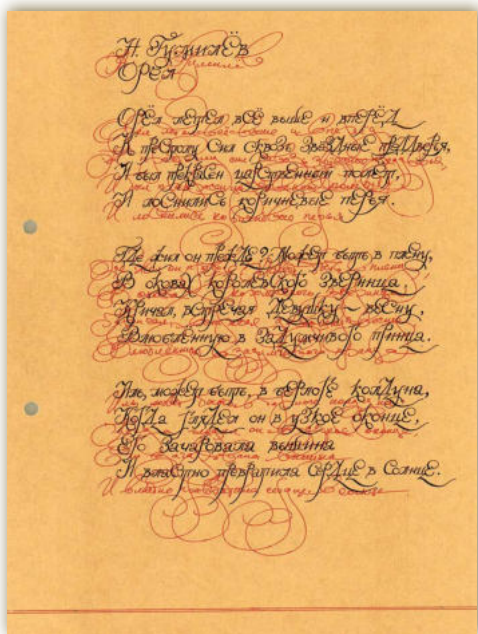 Н. Гумилёв
Орёл
Орёл летел всё выше и вперёд
К престолу Сил сквозь звёздные преддверья,
И был прекрасен царственный полёт,
И лоснились коричневые перья.
Где жил он прежде? Может быть в плену,
В оковах королевского зверинца,
Кричал, встречая девушку-весну,
Влюблённую в задумчивого принца.
Иль, может быть, в берлоге колдуна,
Когда глядел он в узкое оконце,
Его зачаровала вышина
И властно превратила сердце в Солнце.